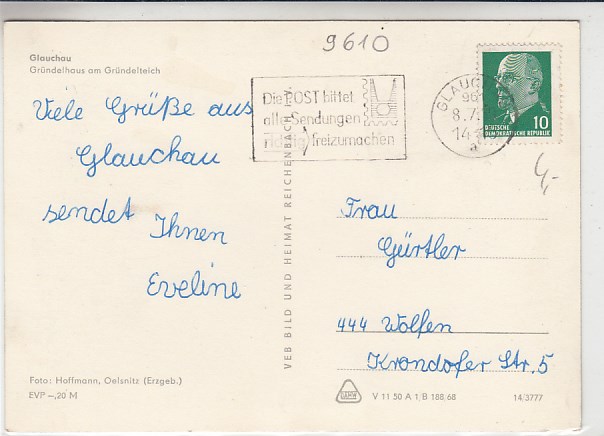 9610
Glauchau
Gründelhaus am Gründelteich
Viele Grüße aus
Glauchau
sendet Ihnen
Eveline
Die POST bittet
alle Sendungen
richtig freizumachen
GLAUCHAU
8.7.
14
a
10
DEUTSCHE
DEMOKRATISCHE REPUBLIK
4,-
VEB BILD UND HEIMAT REICHENBACH i. V.
Frau
Gürtler
444 Wolfen
Krondofer Str. 5
Foto: Hoffmann, Oelsnitz (Erzgeb.)
EVP –,20 M
V 11 50 A 1 B 188 68
14/3777